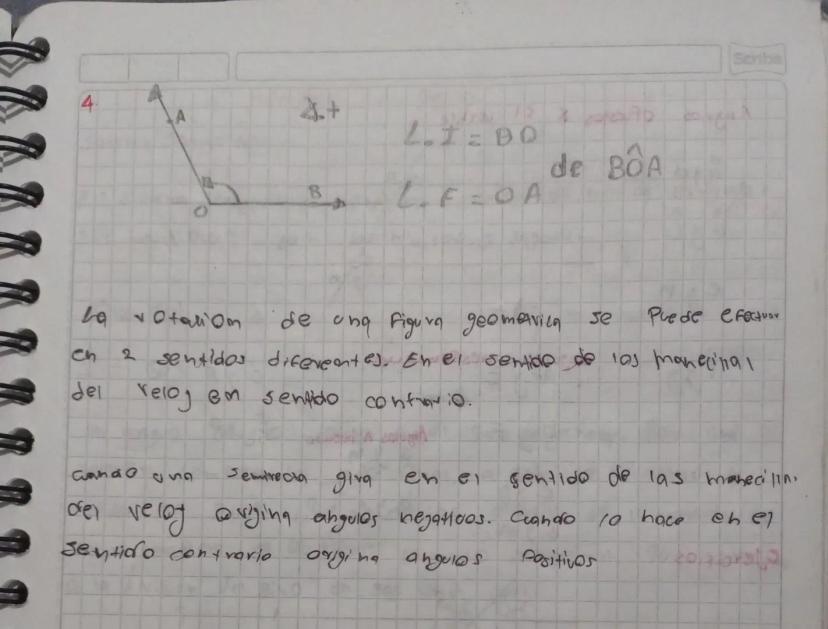 Scribe
4.
A
∡+
L.I = BO
de BÔA
B
L.F = OA
O
La rotación de una figura geometrica se Puede efectuar
en 2 sentidos difereantes. En el sentido de las manecillal
del reloj en sentido contrario.
cuando una semirecta giva en el sentido de las manecillas
del reloj origina angulos negativos. Cuando lo hace en el
sentido contrario origina angulos Positivos